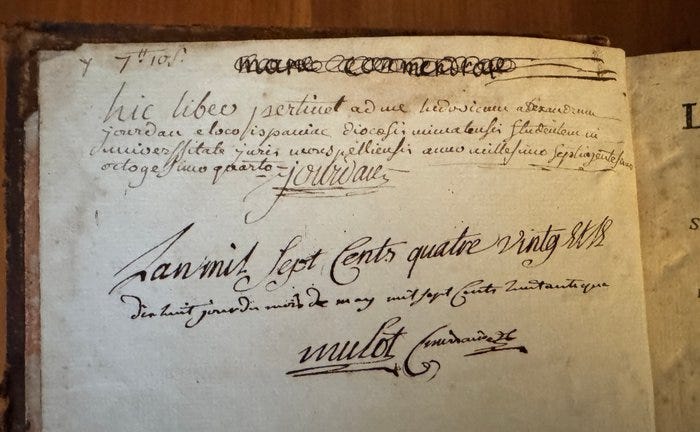 7tt 10s.
hic liber pertinet ad me ludovicum alexandrum
jourdan e loco ispaniac diocesis mimatensis studentem in
universsitate juris monspelliensis anno millesimo septingentesimo
octogesimo quarto jourdan
Lan mil Sept Cents quatre vintg Et
dix huit jour du mois de may mil sept Cents huitante que
mulot